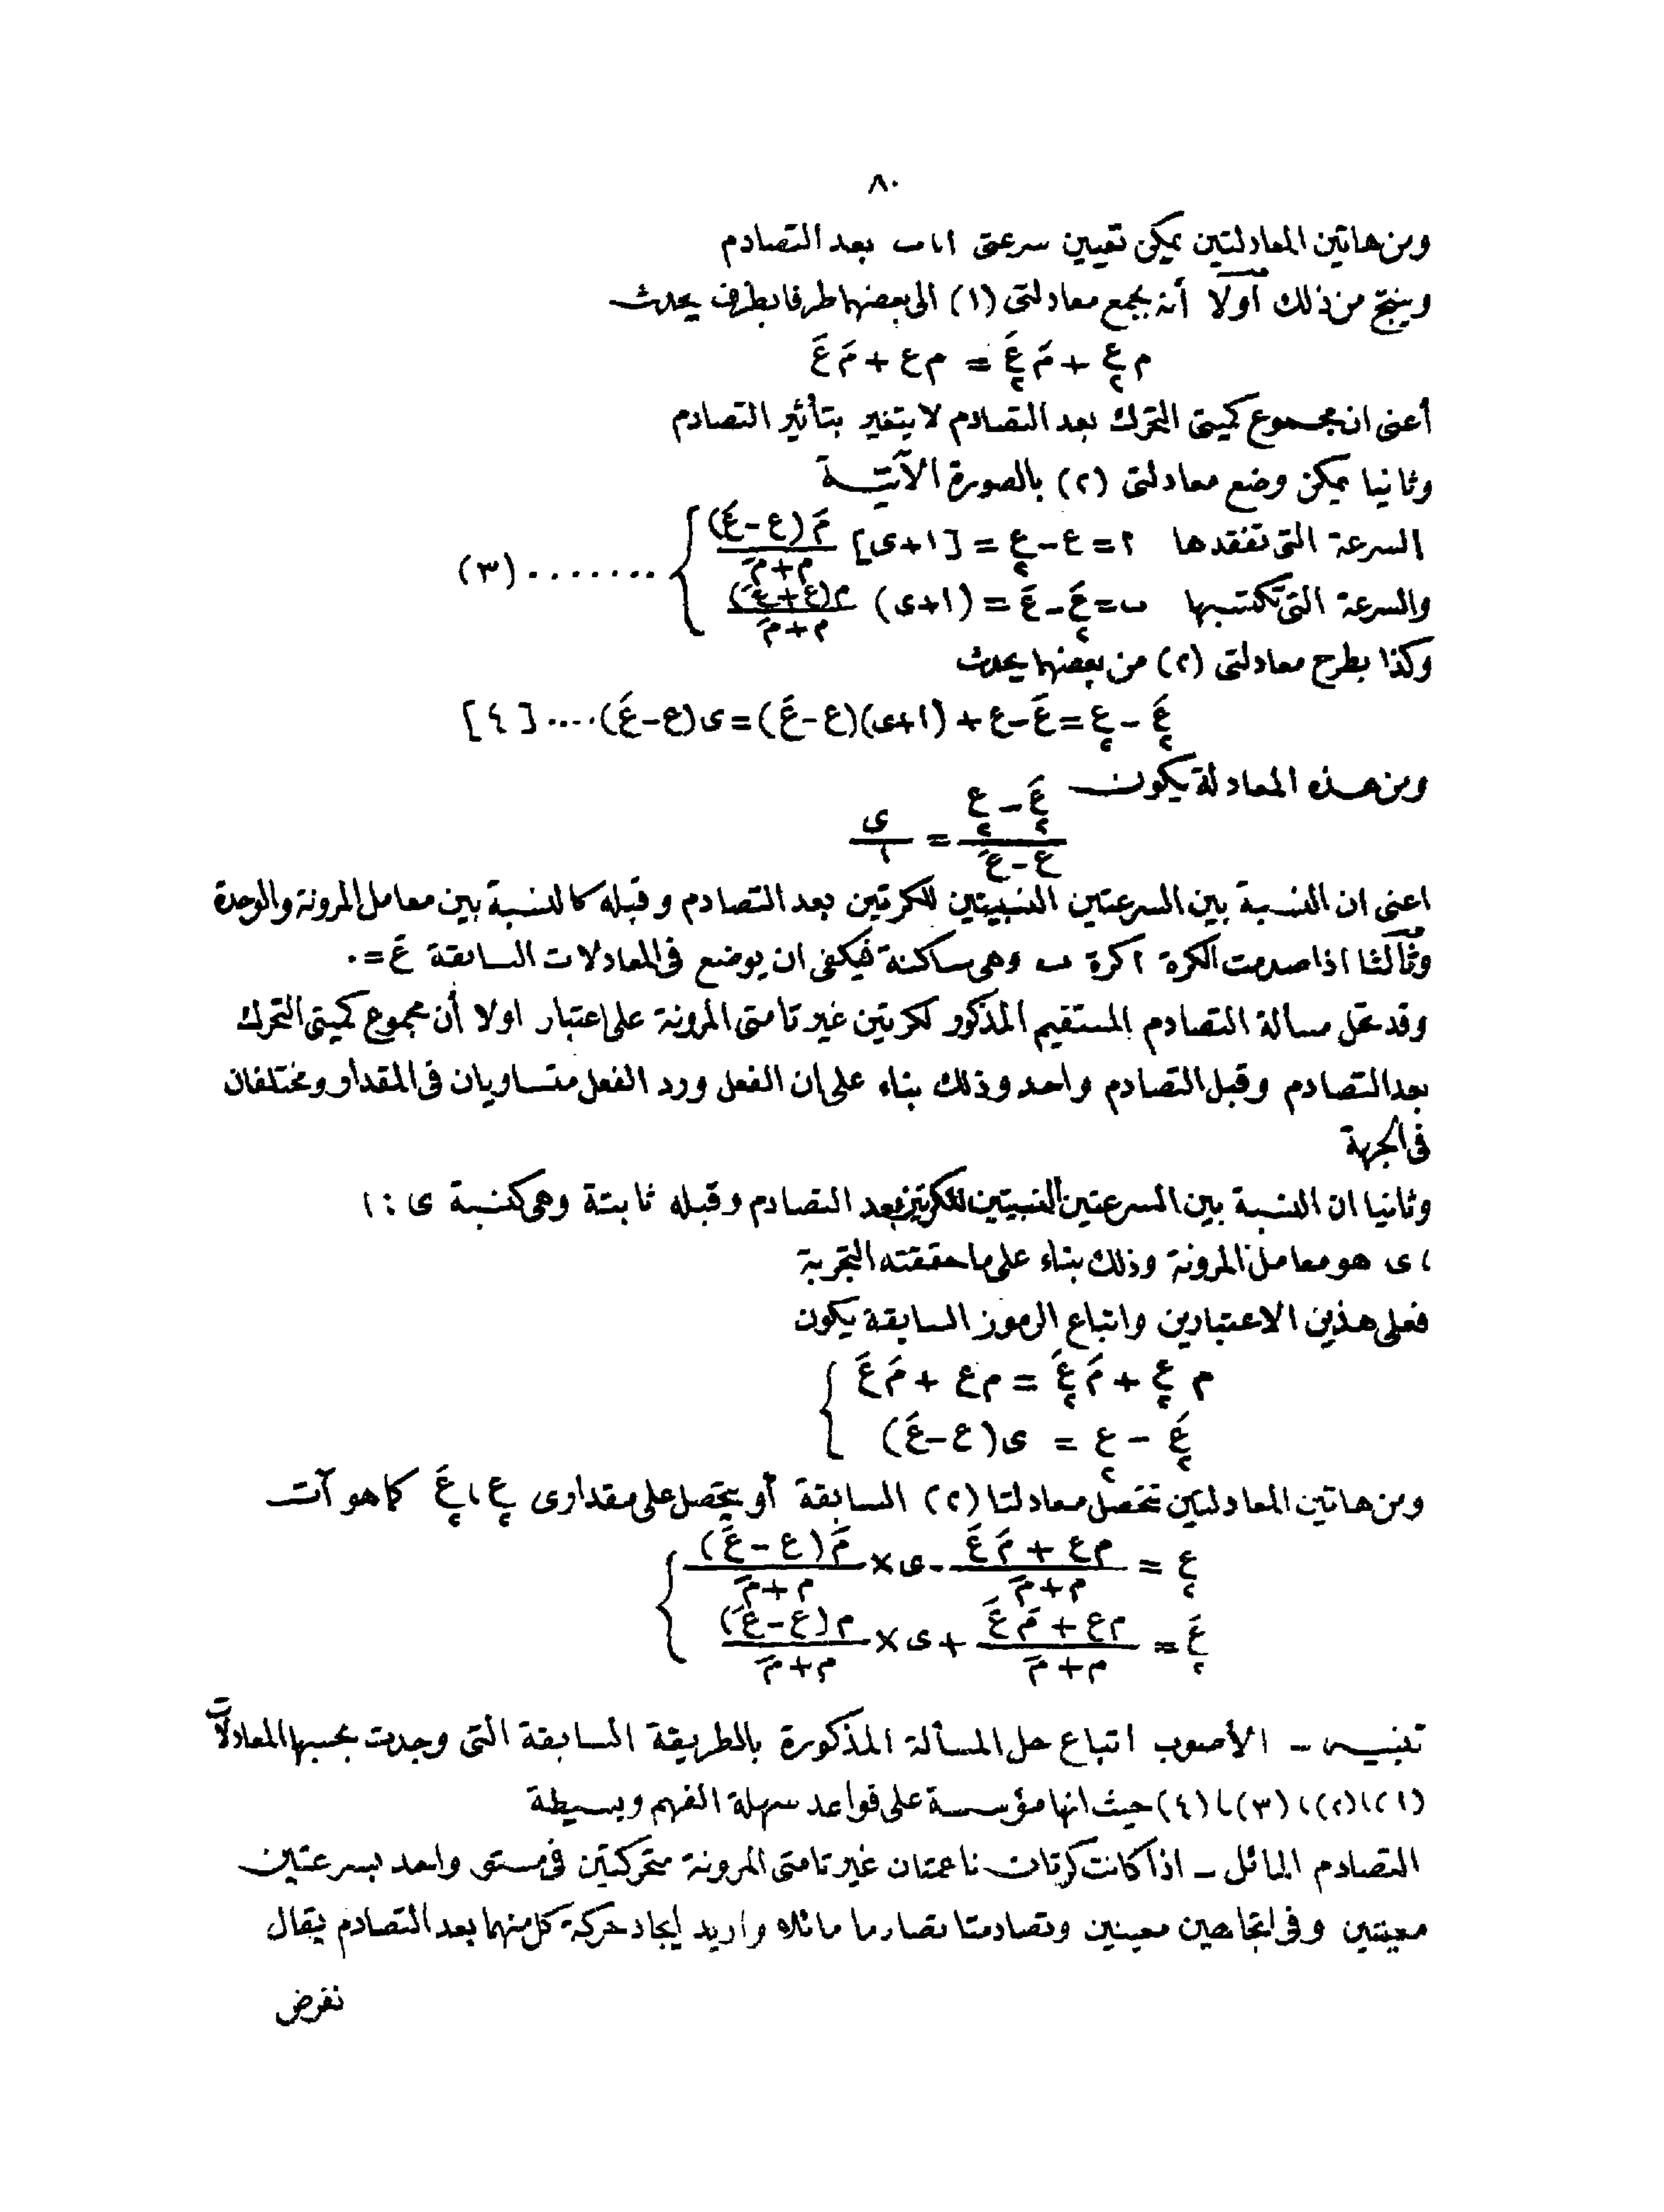 ٨٠
ومن هاتين المعادلتين يمكن تعيين سرعتى ا ، ب بعد التصادم
وينتج من ذلك أولا أنه بجمع معادلتى (١) الى بعضهما طرفا بطرف يحدث
م ع₂ + مَ عَ₂ = م ع + مَ عَ
أعنى ان مجموع كميتى التحرك بعد التصادم لا يتغير بتأثير التصادم
وثانيا يمكن وضع معادلتى (٢) بالصورة الآتية
السرعة التى تفقدها ا = ع - ع₂ = [١+ى] مَ(ع-عَ)/م+مَ
والسرعة التى تكتسبها ب = عَ₂ - عَ = (١+ى) م(ع+عَ)/م+مَ } ....... (٣)
وكذا بطرح معادلتى (٢) من بعضهما يحدث
عَ₂ - ع₂ = عَ - ع + (١+ى)(ع-عَ) = ى(ع-عَ) .... [٤]
ومن هذه المعادلة يكون
عَ₂ - ع₂/ع - عَ = ى/١
اعنى ان النسبة بين السرعتين النسبيتين للكرتين بعد التصادم وقبله كالنسبة بين معامل المرونة والوحدة
وثالثا اذا صدمت الكرة ا كرة ب وهى ساكنة فيكفى ان يوضع فى المعادلات السابقة عَ = ٠
وقد تحل مسألة التصادم المستقيم المذكور لكرتين غير تامتى المرونة على اعتبار اولا أن مجموع كميتى التحرك
بعد التصادم وقبل التصادم واحد وذلك بناء على ان الفعل ورد الفعل متساويان فى المقدار ومختلفان
فى الجهة
وثانيا ان النسبة بين السرعتين النسبيتين للكرتين بعد التصادم وقبله ثابتة وهى كنسبة ى : ١
، ى هو معامل المرونة وذلك بناء على ما حققته التجربة
فعلى هذين الاعتبارين واتباع الرموز السابقة يكون
م ع₂ + مَ عَ₂ = م ع + مَ عَ
عَ₂ - ع₂ = ى(ع-عَ)
ومن هاتين المعادلتين تتحصل معادلتا (٢) السابقة أو يتحصل على مقدارى ع₂ ، عَ₂ كما هو آت
ع₂ = م ع + مَ عَ/م+مَ - ى × مَ(ع - عَ)/م+مَ
عَ₂ = م ع + مَ عَ/م+مَ + ى × م(ع-عَ)/م+مَ
تنبيه - الأصوب اتباع حل المسألة المذكورة بالطريقة السابقة التى وجدت بحسبها المعادلات
(١)،(٢)،(٣)،(٤) حيث انها مؤسسة على قواعد سهلة الفهم وبسيطة
التصادم المائل - اذا كانت كرتان ناعمتان غير تامتى المرونة متحركتين فى مستو واحد بسرعتين
معينتين وفى اتجاهين معينين وتصادمتا تصادما مائلا واريد ايجاد حركة كل منهما بعد التصادم يقال
نفرض